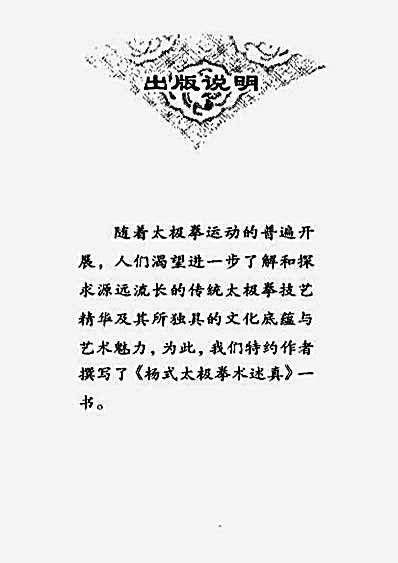 出版说明
随着太极拳运动的普遍开
展，人们渴望进一步了解和探
求源远流长的传统太极拳技艺
精华及其所独具的文化底蕴与
艺术魅力，为此，我们特约作者
撰写了《杨式太极拳术述真》一
书。